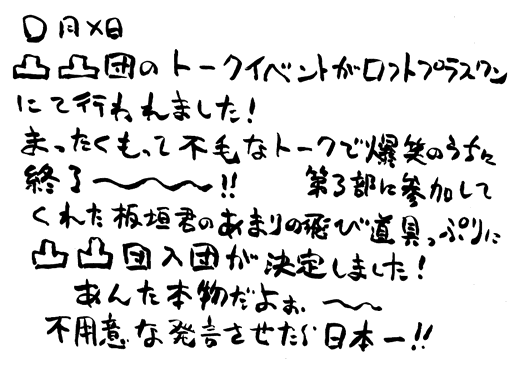 〇月×日
凸凸団のトークイベントがロフトプラスワン
にて行われました!
まったくもって不毛なトークで爆笑のうちに
終了〜〜〜!! 第3部に参加して
くれた板垣君のあまりの飛び道具っぷりに
凸凸団入団が決定しました!
あんた本物だよぉ〜〜
不用意な発言させたら日本一!!